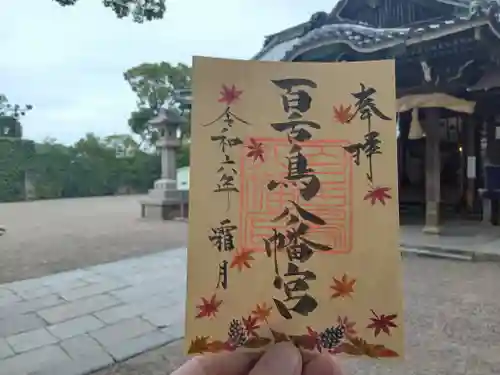 奉拝
百舌鳥八幡宮
令和六年
霜月